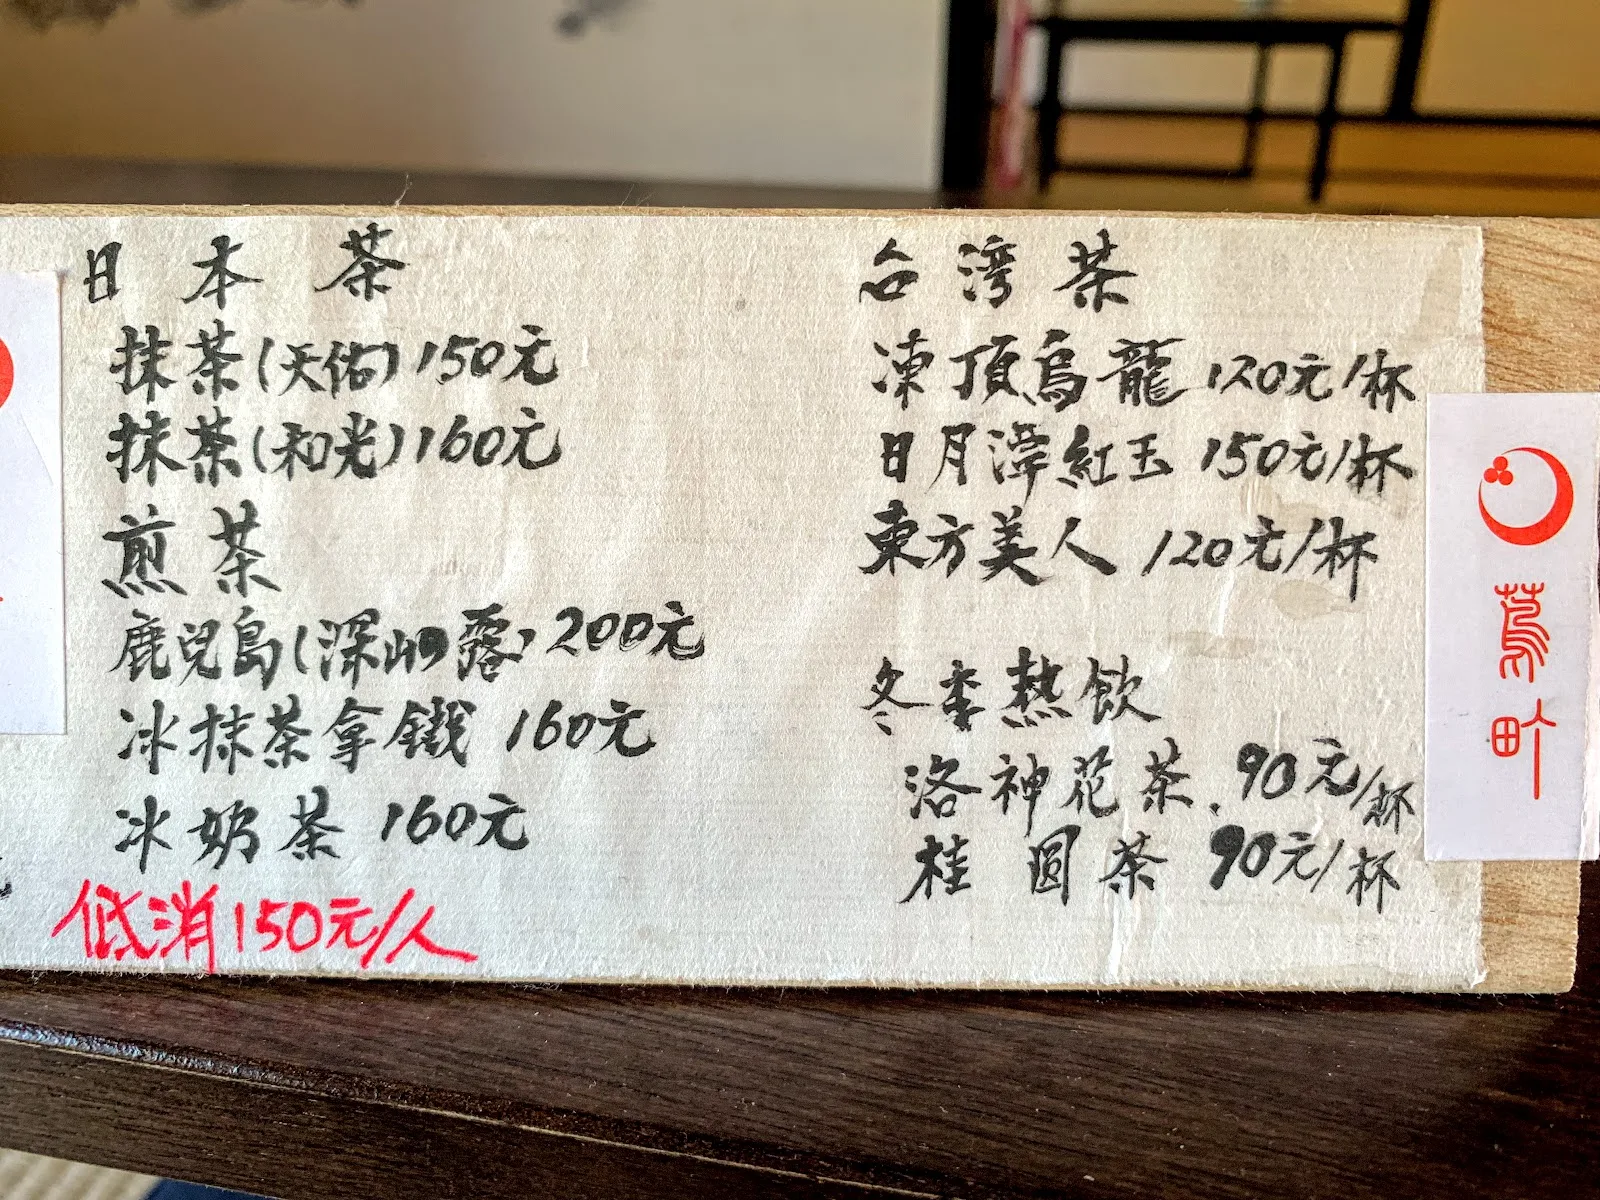 日本茶
抹茶(天佑)150元
抹茶(和光)160元
煎茶
鹿兒島(深山の露)200元
冰抹茶拿鐵 160元
冰奶茶 160元
低消150元/人
台湾茶
凍頂烏龍 120元/杯
日月潭紅玉 150元/杯
東方美人 120元/杯
冬季熱飲
洛神花茶.90元/杯
桂圓茶 90元/杯